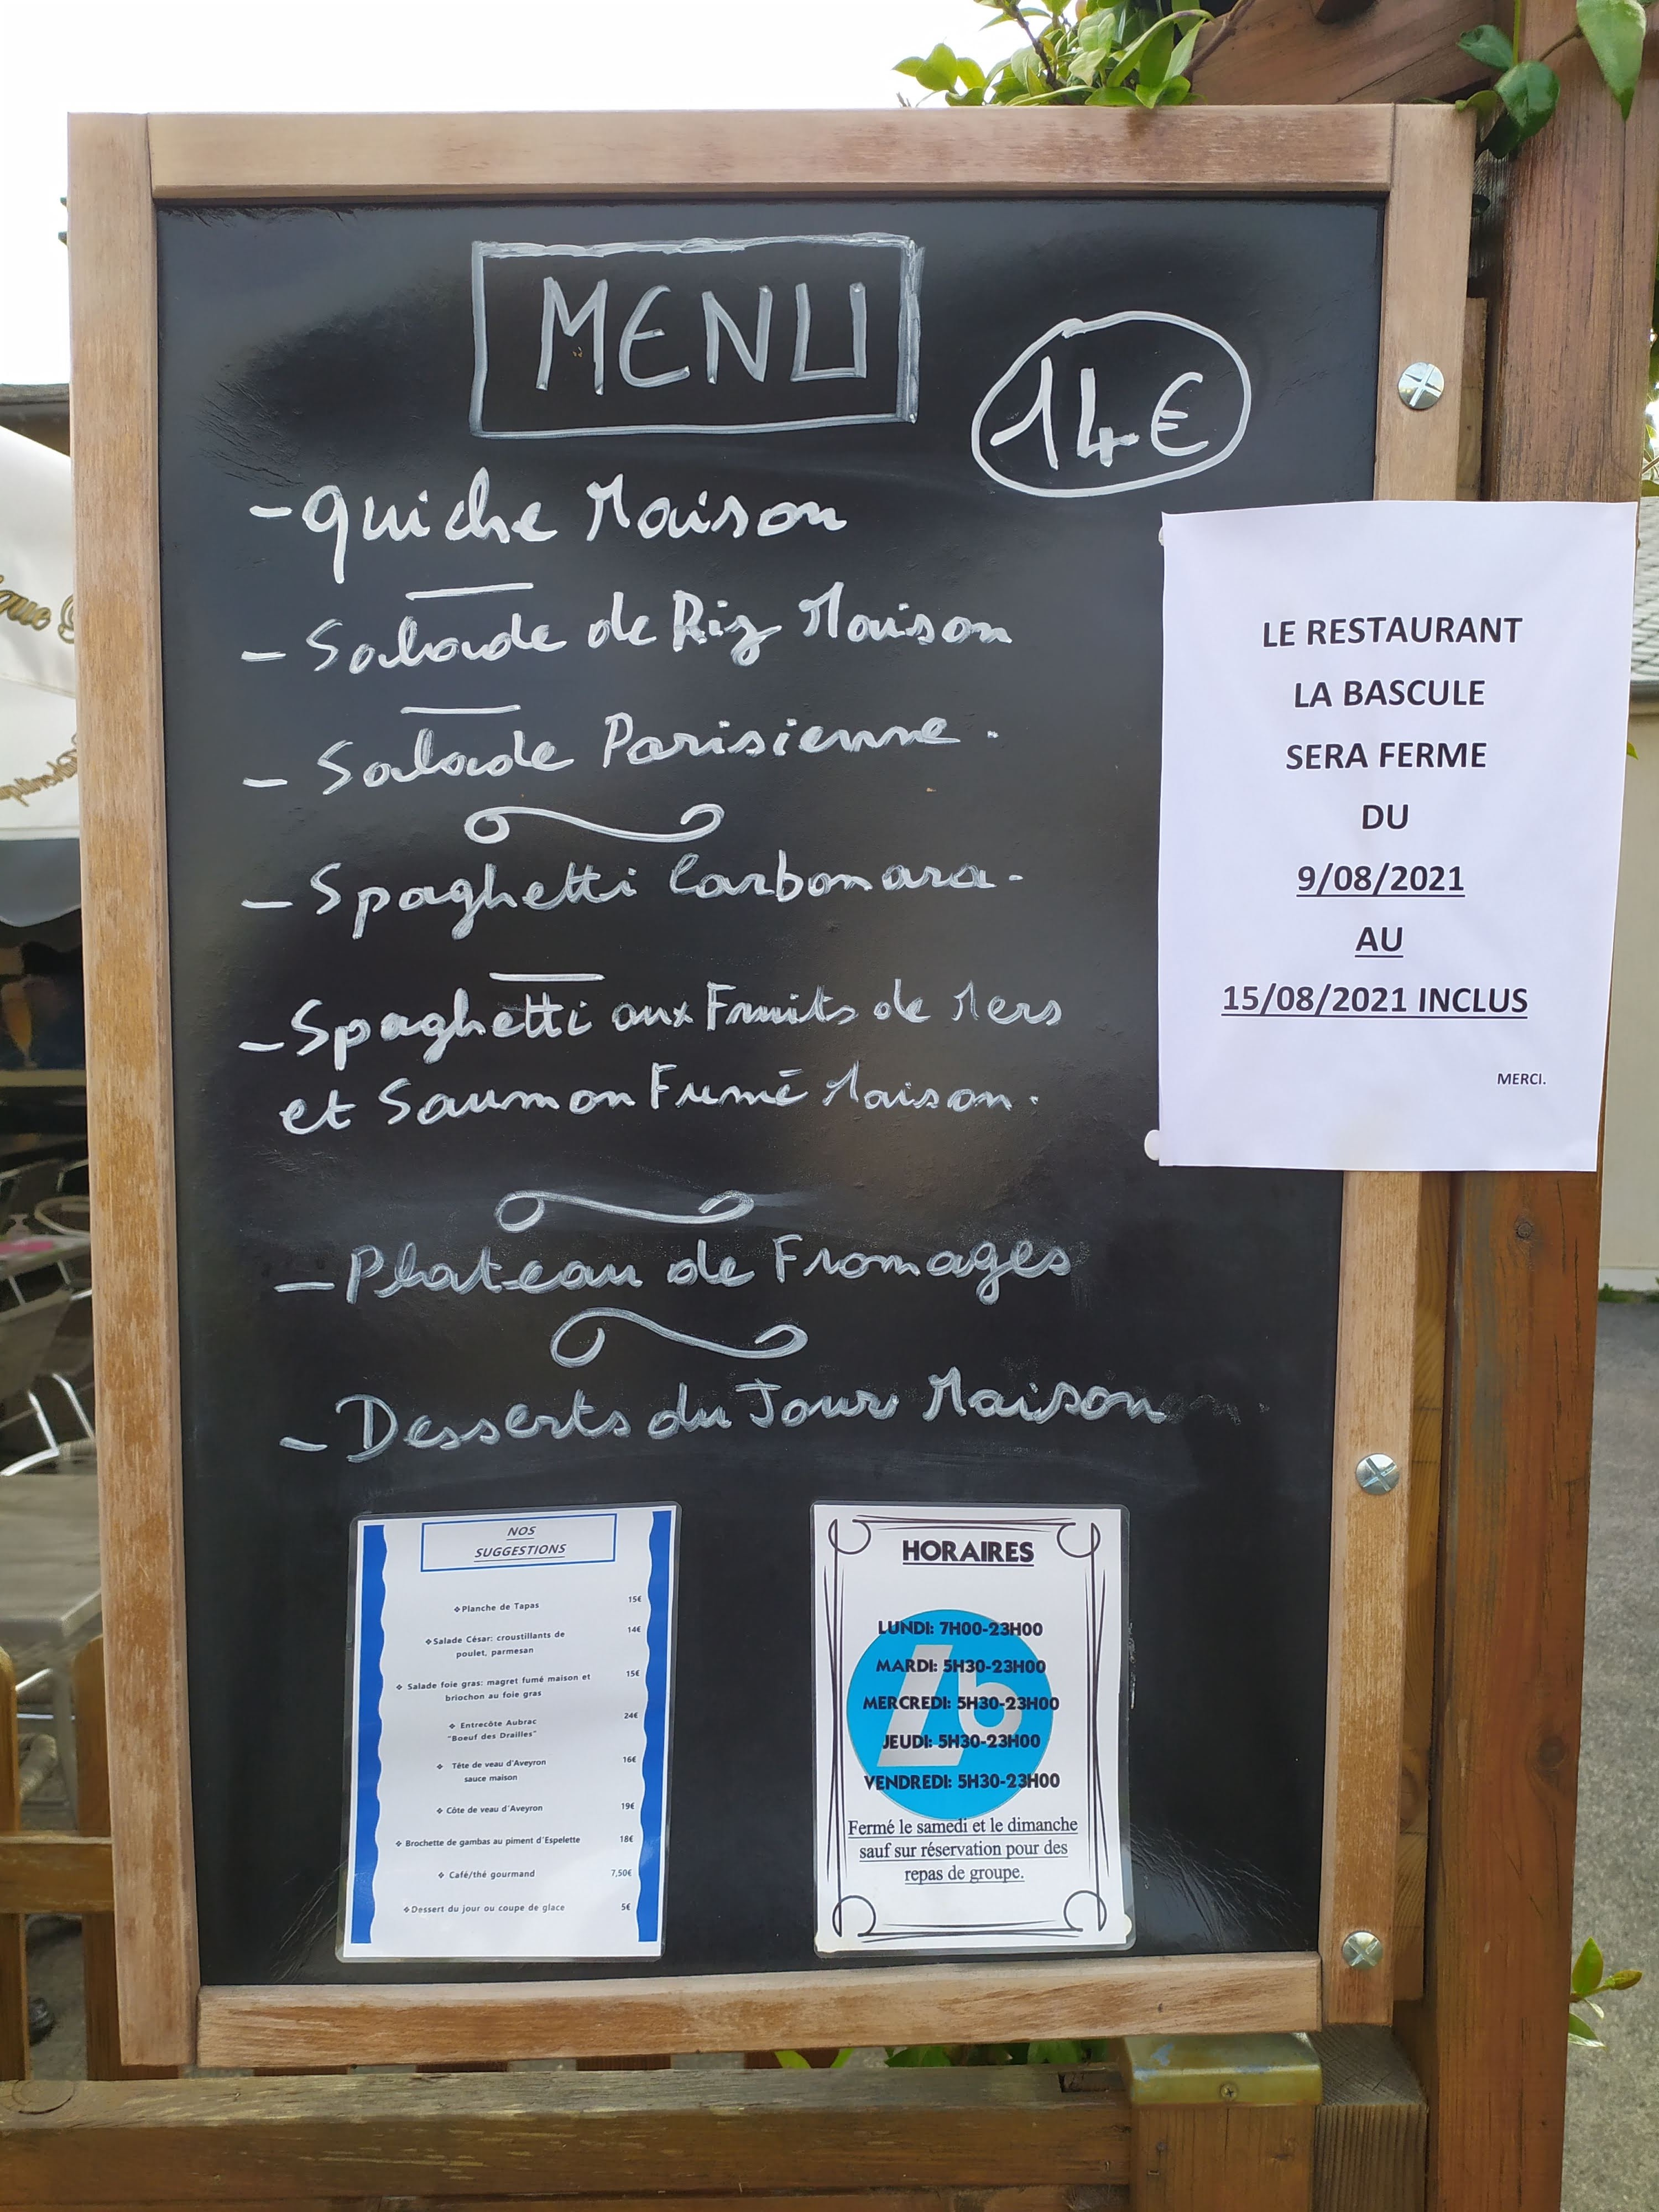 MENU
14€
- Quiche Maison
- Salade de Riz Maison
- Salade Parisienne.
- Spaghetti Carbonara-
- Spaghetti aux Fruits de Mers
et Saumon Fumé Maison.
- Plateau de Fromages
- Desserts du Jour Maison
LE RESTAURANT
LA BASCULE
SERA FERME
DU
9/08/2021
AU
15/08/2021 INCLUS
MERCI.
NOS
SUGGESTIONS
❖Planche de Tapas 15€
❖Salade César: croustillants de 14€
poulet, parmesan
❖ Salade foie gras: magret fumé maison et 15€
briochon au foie gras
❖ Entrecôte Aubrac 24€
"Boeuf des Drailles"
❖ Tête de veau d'Aveyron 16€
sauce maison
❖ Côte de veau d'Aveyron 19€
❖ Brochette de gambas au piment d'Espelette 18€
❖ Café/thé gourmand 7,50€
❖Dessert du jour ou coupe de glace 5€
HORAIRES
LUNDI: 7H00-23H00
MARDI: 5H30-23H00
MERCREDI: 5H30-23H00
JEUDI: 5H30-23H00
VENDREDI: 5H30-23H00
lb
Fermé le samedi et le dimanche
sauf sur réservation pour des
repas de groupe.